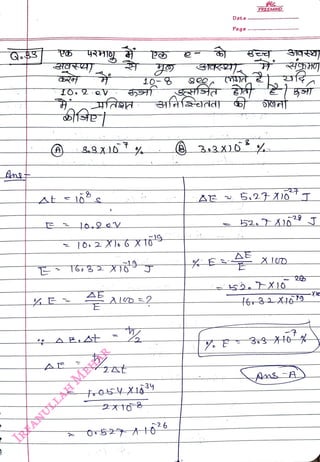 Date
Page
Q.33 एक परमाणु में एक e- को उच्च अवस्था
अवस्था से मूल अवस्था में संक्रमण
करने में 10-8 sec लगते है। यदि
10.2 eV ऊर्जा उत्सर्जित होती है। ऊर्जा
में प्रतिशत अनिश्चितता की गणना
कीजिए।
Ⓐ 3.3×10⁻⁷ % Ⓑ 3.3×10⁻⁸ %
Ans-
Δt = 10⁻⁸ s
E = 10.2 eV
= 10.2 × 1.6 × 10⁻¹⁹
E = 16.32 × 10⁻¹⁹ J
% E = ΔE/E × 100 = ?
∵ ΔE.Δt = ħ/2
ΔE = ħ/2Δt
= 1.054 × 10⁻³⁴
2 × 10⁻⁸
= 0.527 × 10⁻²⁶
ΔE = 5.27 × 10⁻²⁷ J
= 52.7 × 10⁻²⁸ J
% E = ΔE/E × 100
= 52.7 × 10⁻²⁸
16.32 × 10⁻¹⁹
% E = 3.3 × 10⁻⁷ %
Ans - A
IRFANULLAH MEHAR